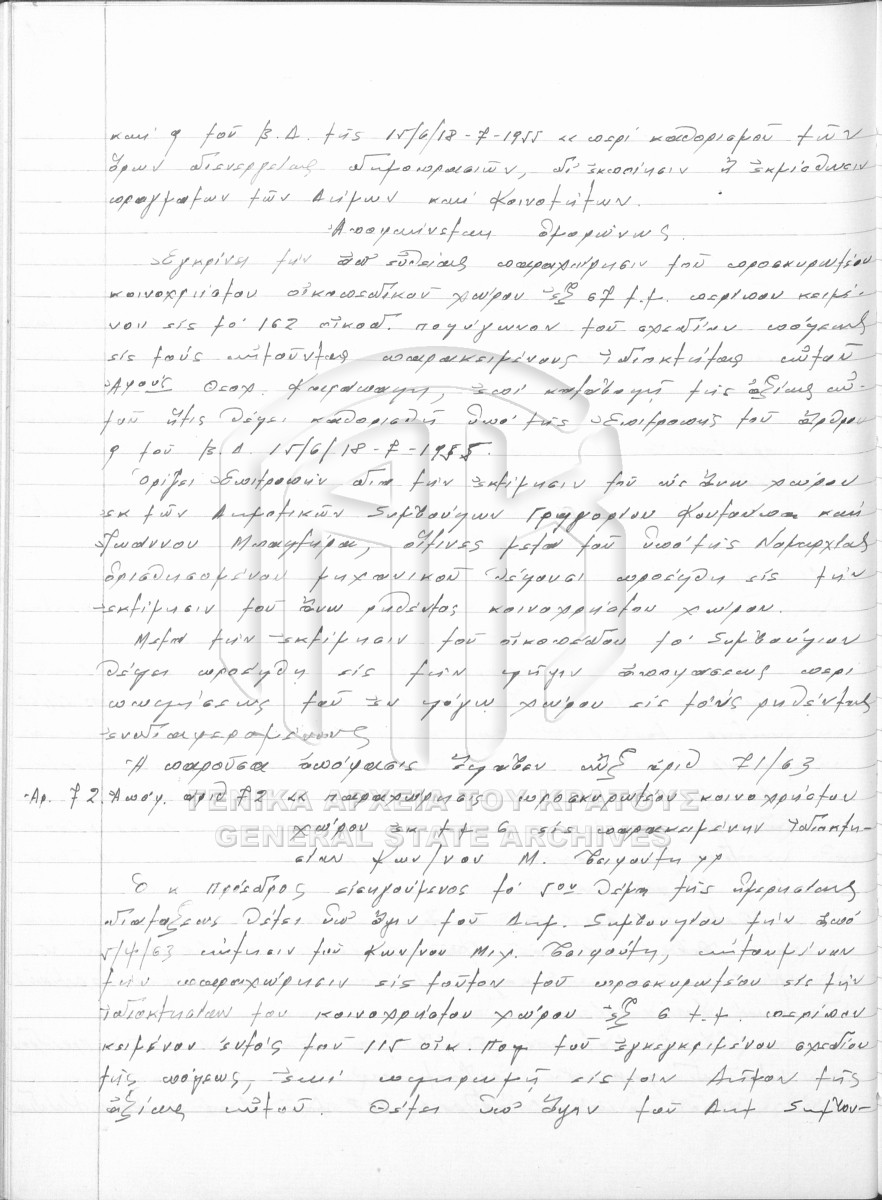 καί 9 τοῦ Β.Δ. τῆς 15/6/18-7-1955 «περί καθορισμοῦ τῶν
ὅρων διενεργείας δημοπρασιῶν, δι' ἐκποίησιν ἤ ἐκμίσθωσιν
πραγμάτων τῶν Δήμων καί Κοινοτήτων.
Ἀποφαίνεται ὁμοφώνως.
Ἐγκρίνει τήν ἀπ' εὐθείας παραχώρησιν τοῦ προσκυρωτέου
κοινοχρήστου οἰκοπεδικοῦ χώρου ἐξ 67 τ.μ. περίπου κειμέ-
νου εἰς τό 162 οἰκοδ. πολύγωνον τοῦ σχεδίου πόλεως
εἰς τούς αἰτοῦντας παρακειμένους ἰδιοκτήτας αὐτοῦ
Ἀφούς Θεοχ. ἐπί καταβολῇ τῆς ἀξίας αὐ-
τοῦ ἥτις θέλει καθορισθῆ ὑπό τῆς Ἐπιτροπῆς τοῦ ἄρθρου
9 τοῦ Β.Δ. 15/6/18-7-1955.
Ὁρίζει Ἐπιτροπήν διά τήν ἐκτίμησιν τοῦ ὡς ἄνω χώρου
ἐκ τῶν Δημοτικῶν Συμβούλων Γρηγορίου καί
Ἰωάννου οἵτινες μετά τοῦ ὑπό τῆς Νομαρχίας
ὁρισθησομένου μηχανικοῦ θέλουσι προέλθη εἰς τήν
ἐκτίμησιν τοῦ ἄνω ρηθέντος κοινοχρήστου χώρου.
Μετά τήν ἐκτίμησιν τοῦ οἰκοπέδου τό Συμβούλιον
θέλει προέλθη εἰς τήν λῆψιν ἀποφάσεως περί
πωλήσεως τοῦ ἐν λόγῳ χώρου εἰς τούς ρηθέντας
ἐνδιαφερομένους
Ἡ παροῦσα ἀπόφασις ἔλαβεν αὔξ ἀριθ 71/63
Ἀρ. 72. Ἀπόφ. ἀριθ 72 «παραχώρησις προσκυρωτέου κοινοχρήστου
χώρου ἐκ τμ 6 εἰς παρακειμένην ἰδιοκτη-
σίαν Κων/νου Μ. Τσιφούτη
Ὁ κ Πρόεδρος εἰσηγούμενος τό 5ον θέμα τῆς ἡμερησίας
διατάξεως θέτει ὑπ' ὄψιν τοῦ Δημ. Συμβουλίου τήν ἀπό
5/4/63 αἴτησιν τοῦ Κων/νου Μιχ. Τσιφούτη, αἰτουμένου
τήν παραχώρησιν εἰς τοῦτον τοῦ προσκυρωτέου εἰς τήν
ἰδιοκτησίαν του κοινοχρήστου χώρου ἐξ 6 τ.μ. περίπου
κειμένου ἐντός τοῦ 115 οἰκ. Πολ τοῦ ἐγκεκριμένου σχεδίου
τῆς πόλεως, ἐπί πληρωμῇ εἰς τόν Δῆμον τῆς
ἀξίας αὐτοῦ. Θέτει ὑπ' ὄψιν τοῦ Δημ Συμβου-
ΓΕΝΙΚΑ ΑΡΧΕΙΑ ΤΟΥ ΚΡΑΤΟΥΣ
GENERAL STATE ARCHIVES